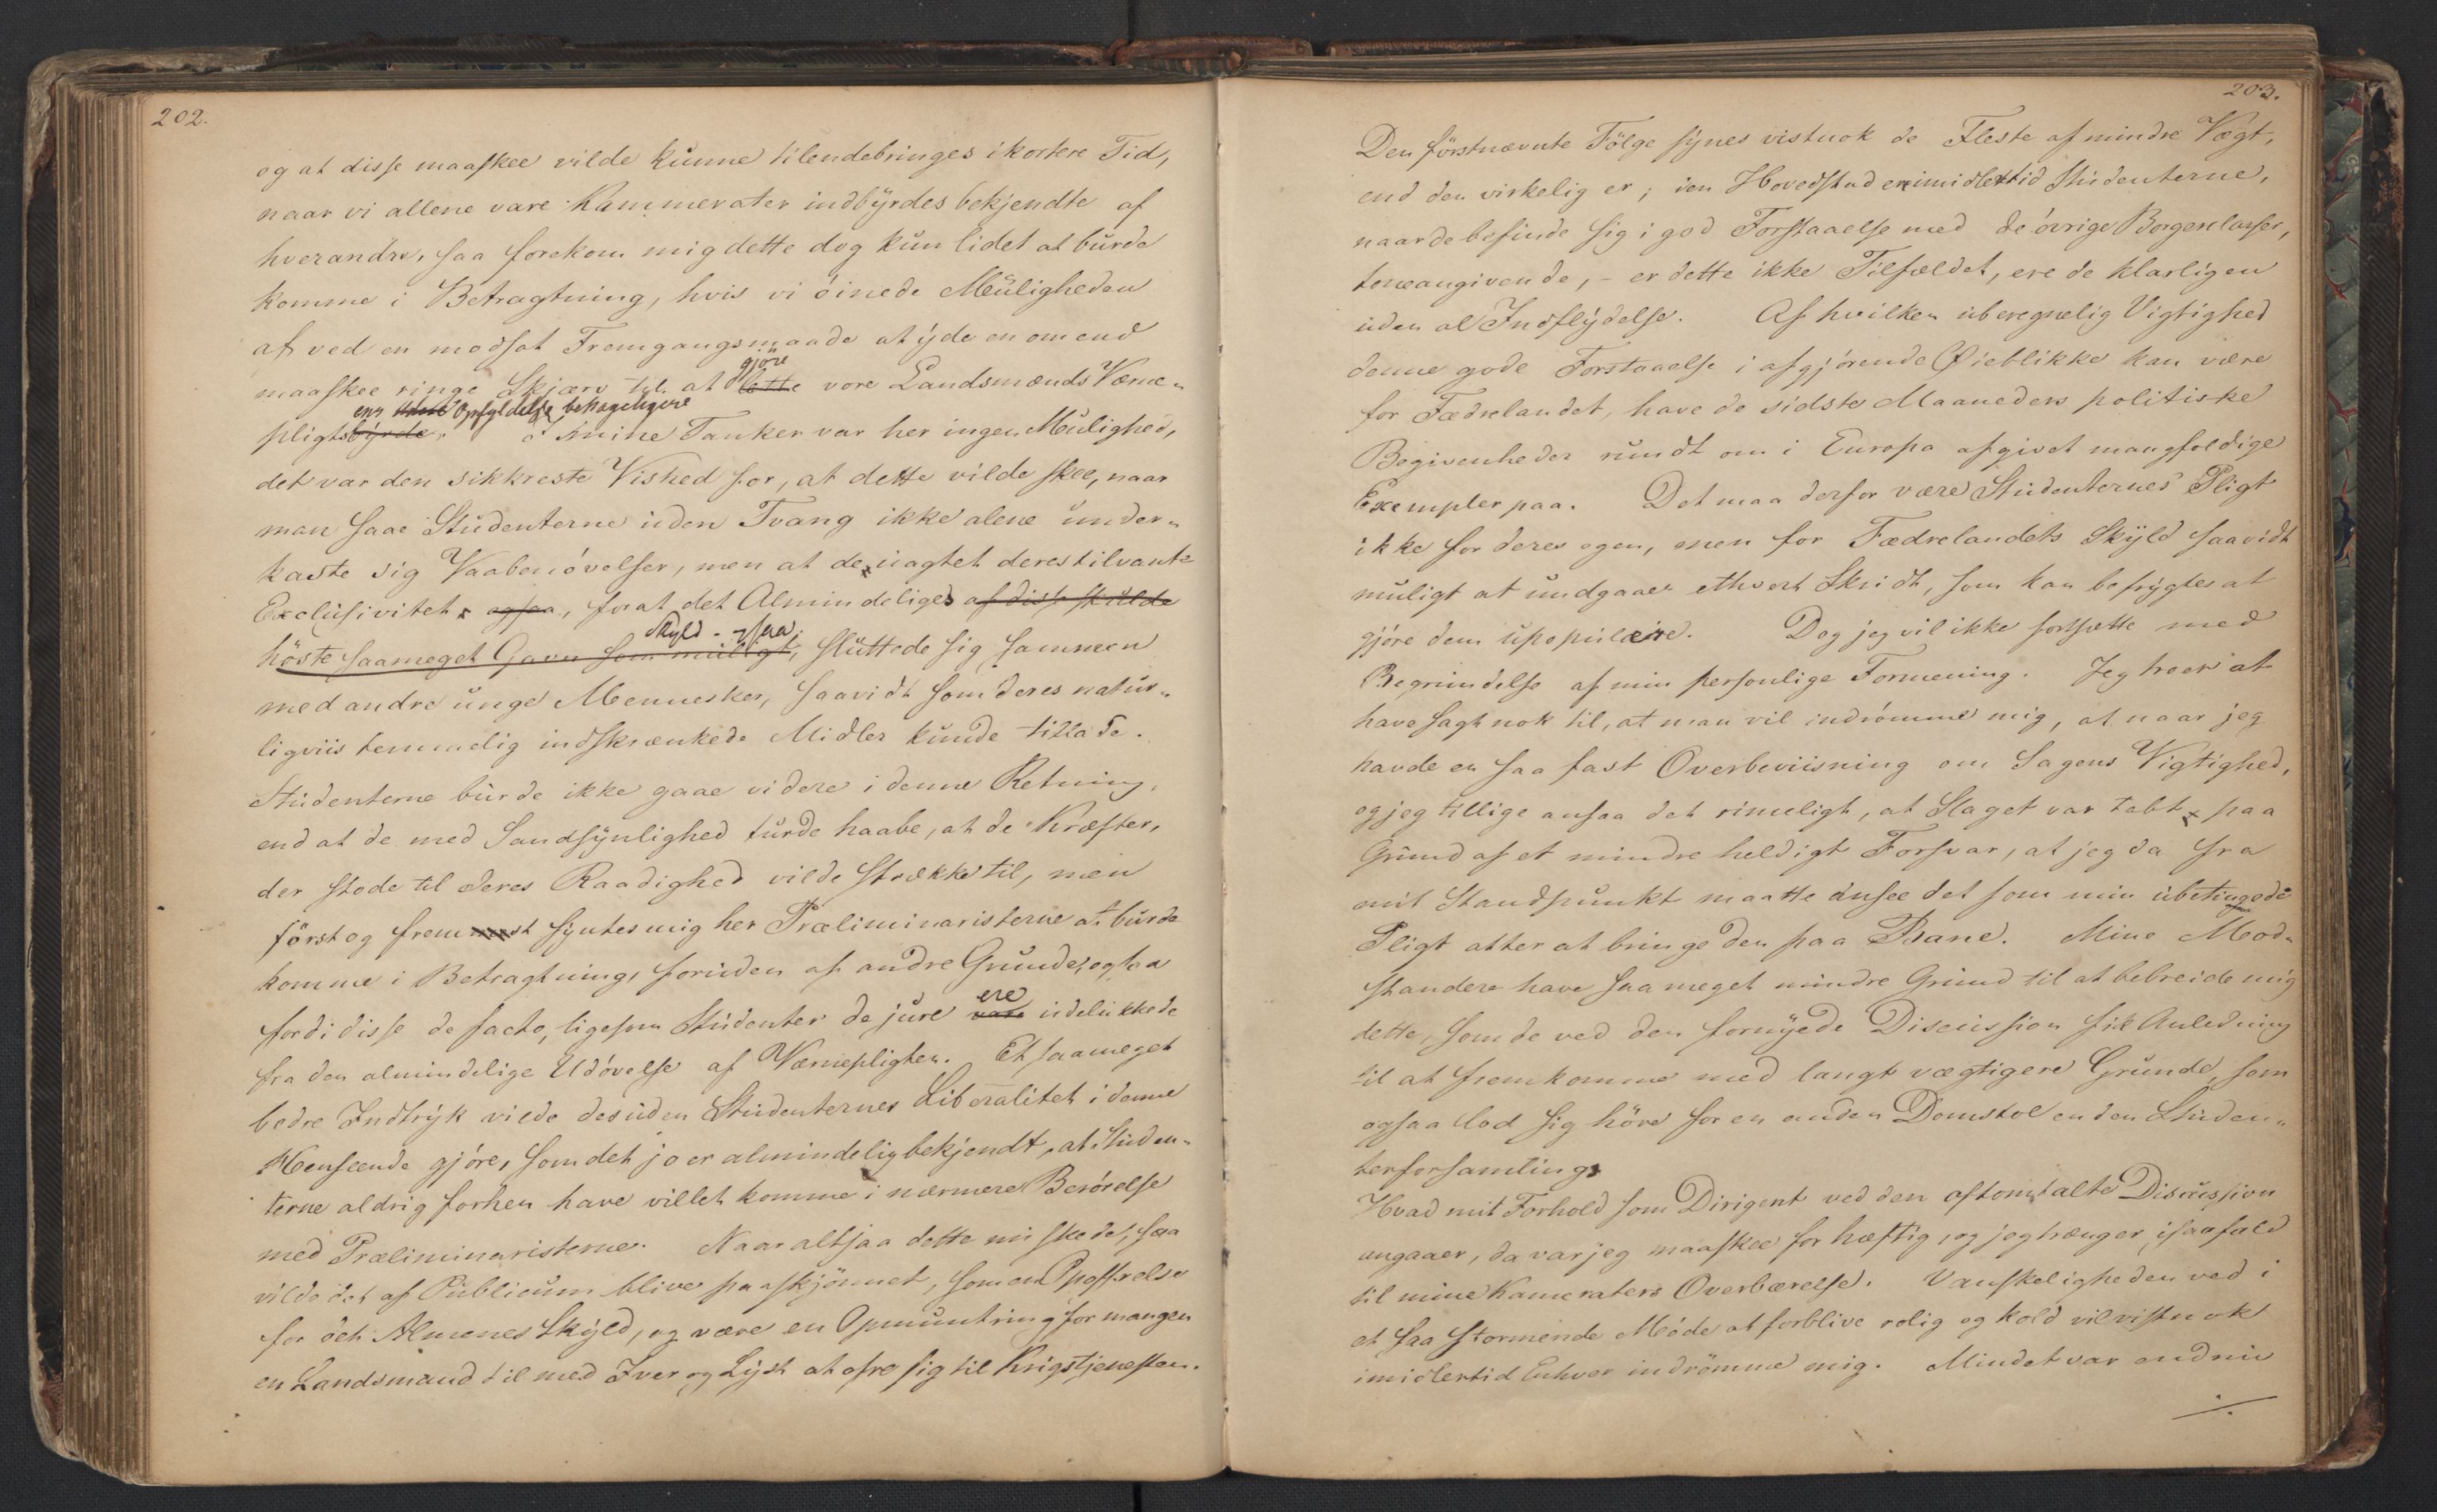 202.
og at disse maaskee vilde kunne tilendebringes i kortere Tid,
naar vi allene vare Kammerater indbyrdes bekjendte af
hverandre, saa forekom mig dette dog kun lidet at burde
komme i Betragtning, hvis vi öinede Muligheden
af ved en modsat Fremgangsmaade at yde en om end
gjöre
maaskee ringe Skjærv til at lette vore Landsmænds Værne-
Opfyldelse behageligere
pligtsbyrde. I mine Tanker var her ingen Mulighed,
det var den sikkreste Vished for, at dette vilde skee, naar
man saae Studenterne uden Tvang ikke alene under-
kaste sig Vaabenövelser, men at de uagtet deres tilvante
Exclusivitet ogsaa, for at det Almindelige af disse skulde
Skyld - ogsaa
höste saameget Gavn som muligt, sluttede sig sammen
med andre unge Mennesker, saavidt som deres natur-
ligviis temmelig indskrænkede Midler kunde tillade.
Studenterne burde ikke gaae videre i denne Retning,
end at de med Sandsynlighed turde haabe, at de Kræfter,
der stode til deres Raadighed vilde strække til, men
först og fremmest syntes mig her Præliminaristerne at burde
komme i Betragtning, foruden af andre Grunde, ogsaa
ere
fordi disse de facto, ligesom Studenter de jure vare udelukkede
fra den almindelige Udövelse af Værnepligten. Et saameget
bedre Indtryk vilde desuden Studenternes Liberalitet i denne
Henseende gjöre, som det jo er almindelig bekjendt, at Studen-
terne aldrig forhen have villet komme i nærmere Berörelse
med Præliminaristerne. Naar altsaa dette nu skede, saa
vilde det af Publicum blive paaskjönnet, som en Opoffrelse
for det Almenes Skyld, og være en Opmuntring for mangen
en Landsmand til med Iver og Lyst at ofre sig til Krigstjenesten.
203.
Den förstnævnte Fölge synes vistnok de Fleste af mindre Vægt,
end den virkelig er; i en Hovedstad er imidlertid Studenterne,
naar de befinde sig i god Forstaaelse med de övrige Borgerclasser,
toneangivende, - er dette ikke Tilfældet, ere de klarligen
uden al Indflydelse. Af hvilken uberegnelig Vigtighed
denne gode Forstaaelse i afgjörende Øieblikke kan være
for Fædrelandet, have de sidste Maaneders politiske
Begivenheder rundt om i Europa afgivet mangfoldige
Exempler paa. Det maa derfor være Studenternes Pligt
ikke for deres egen, men for Fædrelandets Skyld saavidt
muligt at undgaae ethvert Skridt, som kan befrygtes at
gjöre dem upopulære. Dog jeg vil ikke fortsætte med
Begrundelse af min personlige Formening. Jeg troer at
have sagt nok til, at man vil indrömme mig, at naar jeg
havde en saa fast Overbeviisning om Sagens Vigtighed,
og jeg tillige ansaa det rimeligt, at Slaget var tabt paa
Grund af et mindre heldigt Forsvar, at jeg da fra
mit Standpunkt maatte ansee det som min ubetingede
Pligt atter at bringe den paa Bane. Mine Mod-
standere have saa meget mindre Grund til at bebreide mig
dette, som de ved den fornyede Discussion fik Anledning
til at fremkomme med langt vægtigere Grunde, som
ogsaa lod sig höre for en anden Domstol end en Studen-
terforsamling.
Hvad mit Forhold som Dirigent ved den oftomtalte Discussion
angaaer, da var jeg maaskee for hæftig, og jeg trænger isaafald
til mine Kameraters Overbærelse. Vanskeligheden ved i
et saa stormende Möde at forblive rolig og kold vil vistnok
imidlertid Enhver indrömme mig. Mindet var endnu